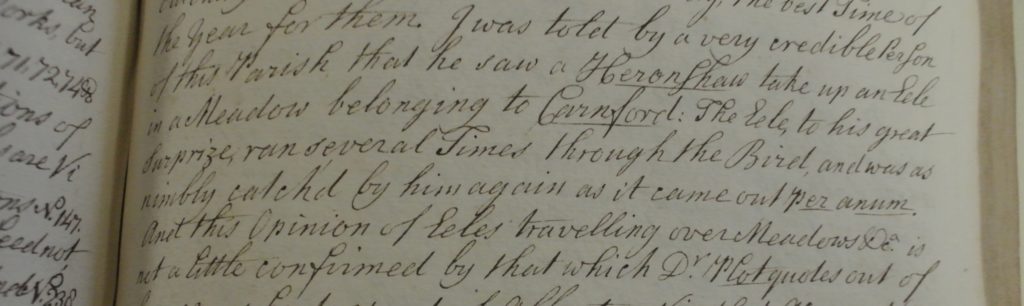 orks, but
71, 72, 74, &
ions of
are Vi
ns No. 147.
eed not
The best Time of
the Year for them. I was told by a very credible Person
of this Parish that he saw a Heronshaw take up an Eele
in a Meadow belonging to Carnford: The Eele, to his great
Surprize, ran several Times through the Bird, and was as
nimbly catch'd by him again as it came out Per anum.
And this Opinion of Eeles travelling over Meadows &c. is
not a little confirmed by that which Dr. Plot quotes out of